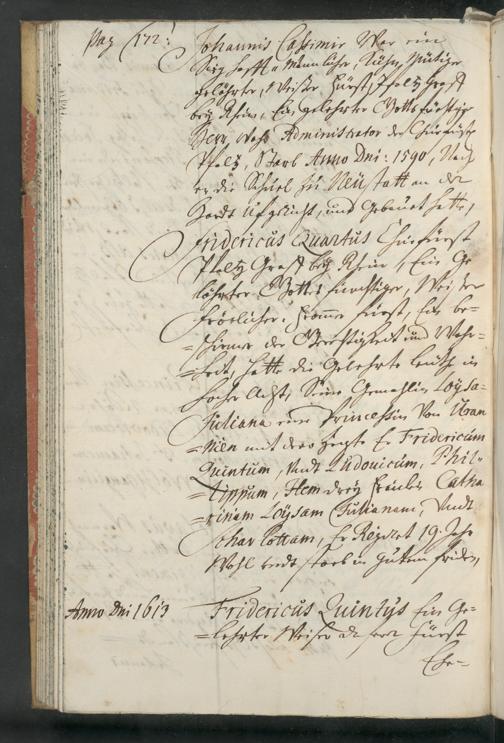 Pag (172:
Johannis Casimir War ein
Sieghafft Männlicher, Kühn, Mütiger
gelährter, Weißer, Fürst, Pfaltz Graff
bey Rhein, Ein gelehrter Gottsförchtiger
Herr, Wahr Administrator der Churfürstl
Pfaltz, Starb Anno Dni: 1590, Nach
er die Schuel zu Neüstatt an der
Hardt ufgericht, und Gebauet hatte,
Fridericus Quartus Churfürst
Pfaltz Graff bey Rhein, Ein Ge-
lährter Gottesfürchtiger, Weißer
Fröelicher, Fromer Fürst, Ein be-
=schirmer der Gerechtigkeit und Wahr-
=heit, hatte die Gelehrte leuth in
hocher Acht, Seine Gemahlin Loysa-
Juliana eine Princessin Von Uran
=nien mit dero zeugte Er Fridericum
Quintum, Undt Ludovicum, Phil-
=lippum, Item drey Fräulen Catha
=rinam Loysam Julianam, Undt
Scharlottam, Er Regiret 19. Jahr
Wohl undt starb in gutem friden
Anno Dni 1613 Fridericus Quintus Ein Ge-
=lehrter Weiser Fürst
Che-